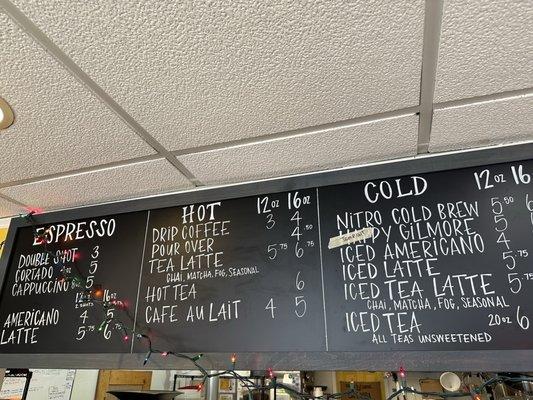 ESPRESSO
DOUBLE SHOT 3
CORTADO 4
CAPPUCCINO 5
12oz 16oz
2 SHOTS
AMERICANO 4 5
LATTE 5.75 6.50
HOT 12oz 16oz
DRIP COFFEE 3 4
POUR OVER 4.50
TEA LATTE 5.75 6.50
CHAI, MATCHA, FOG, SEASONAL
HOT TEA 6
CAFE AU LAIT 4 5
COLD 12oz 16
NITRO COLD BREW 5.50 6
GILMORE 5
ICED AMERICANO 4
ICED LATTE 5.75
ICED TEA LATTE 5.75
CHAI, MATCHA, FOG, SEASONAL
ICED TEA 20oz 6
ALL TEAS UNSWEETENED